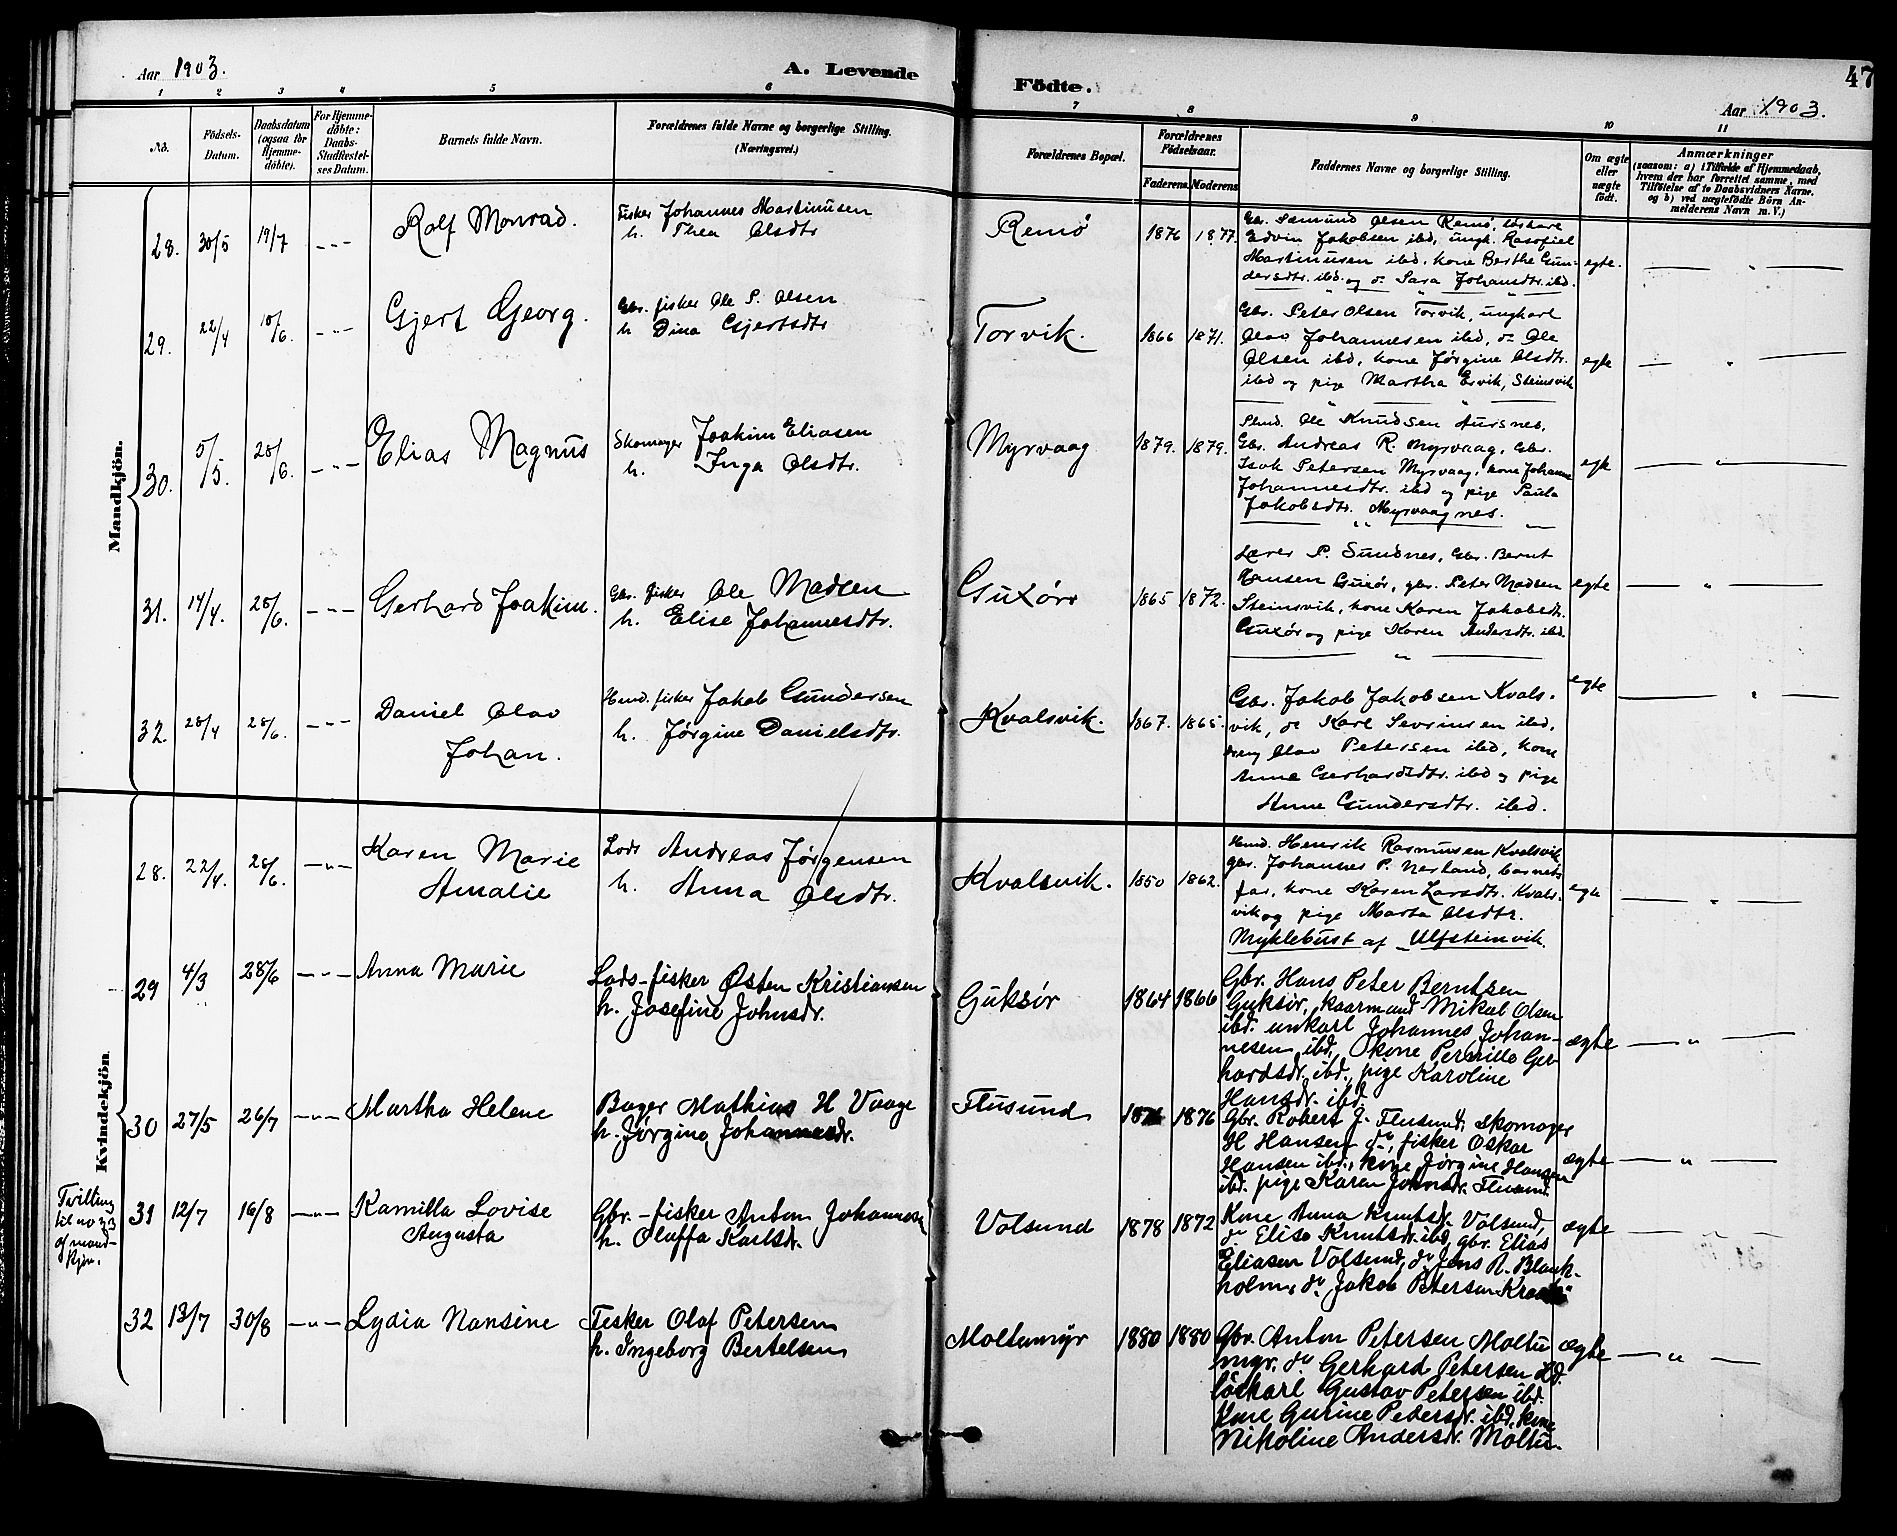 Aar 1903.
A. Levende
Födte.
47
Aar 1903.
1 2 3 4 5 6 7 8 9 10 11
No.
Födsels-
Datum.
Daabsdatum
(ogsaa for
Hjemme-
döbte).
For Hjemme-
döbte:
Daabs-
Stadfæstel-
ses Datum.
Barnets fulde Navn.
Forældrenes fulde Navne og borgerlige Stilling.
(Næringsvei.)
Forældrenes Bopæl.
Forældrenes
Födselsaar.
Faderens. Moderens.
Faddernes Navne og borgerlige Stilling.
Om ægte
eller
uægte
født.
Anmærkninger
(saasom: a) i Tilfælde af Hjemmedaab,
hvem der har forrettet samme, med
Tilföielse af to Daabsvidners Navne.
og b) ved uægtefödte Börn An-
melderens Navn m. V.)
Mandkjön.
28. 30/5 19/7 - - - Rolf Monrad.
Fisker Johannes Martinusen
h. Thea Olsdtr
Remø 1876 1877.
Gbr. Sæmund Olsen Remø,
Edvin Jakobsen ibd, ungk.
Martinusen ibd, kone Berthe Gun-
dersdtr. ibd. og do Sara Johansdtr. ibd.
egte.
29. 22/4 10/6. - " - Gjert Georg.
Gbr. fisker Ole P. Olsen
h. Dina Gjertsdtr
Torvik. 1866 1871.
Gbr. Peter Olsen Torvik, ungkarl
Olav Johannesen ibd, do Ole
Olsen ibd, kone Jørgine Olsdtr.
ibd og pige Martha Ervik, Steinsvik
egte
30. 5/5. 28/6. - - - Elias Magnus
Skomager Joakim Eliasen
h. Inga Olsdtr.
Myrvaag 1879. 1879.
Ole Knudsen Aursnes,
Gbr. Andreas R. Myrvaag, Gbr.
Isak Petersen Myrvaag, kone Johanne
Johannesdtr. ibd og pige Paula
Jakobsdtr. Myrvaagnes.
31. 14/4. 28/6. - - - Gerhard Joakim.
Gbr. fisker Ole Madsen
h. Elise Johannesdtr.
Guxør 1865 1872.
Lærer P. Sundnes, Gbr. Bernt
Hansen Guxør, gbr. Peter Madsen
Steinsvik, kone Karen Jakobsdtr.
Guxør og pige Karen Andersdtr. ibd.
egte
32. 28/4 28/6. - - - Daniel Olav
Johan.
Husmd. fisker Jakob Gundersen
h. Jørgine Danielsdtr.
Kvalsvik. 1867. 1865.
Gbr. Jakob Jakobsen Kvals-
vik, do Karl Sevrinsen ibd,
dreng Olav Petersen ibd, kone
Anne Gerhardsdtr. ibd og pige
Anne Gundersdtr. ibd.
egte
Kvindekjön.
28. 22/4. 28/6. - " - Karen Marie
Amalie
Lods Andreas Jørgensen
h. Anna Olsdtr.
Kvalsvik. 1850 1862.
Husmd. Henrik Rasmusen Kvalsvik
gbr. Johannes P. Nerland, barnets
far, kone Karen Larsdtr. Kvals-
vik og pige Marta Olsdtr.
Myklebust af Ulfsteinvik.
egte
29 4/3 28/6 - " - Anna Marie
Lods-fisker Østen Kristiansen
h. Josefine Johnsdr.
Guksør 1864 1866
Gbr. Hans Peter Berntsen
Guksør, kaarmand Mikal Olsen
ibd. unkarl Johannes Johan-
nesen ibd, kone Pernille Ger-
hardsdr. ibd, pige Karoline
Hansdr. ibd.
ægte
30 27/5 26/7 - " - Martha Helene
Bager Mathias H Vaage
h. Jørgine Johannesdr.
Flusund 1876
Gbr. Robert J. Flusund, Skomager
H Hansen do, fisker Oskar
Hansen ibd, kone Jørgine Hansen
ibd. pige Karen Johnsdr. Flusund.
ægte
Tvilling
til no 33
af mand-
kjøn.
31 12/7 16/8 - " - Kamilla Lovise
Augusta
Gbr.-fisker Anton Johannesen
h. Oluffa Karlsdr.
Volsund 1878 1872
Kone Anna Knutsdr. Volsund,
do Elise Knutsdr. ibd, gbr. Elias
Eliasen Volsund, do Jens A. Blank-
holm, do Jakob Petersen
ægte
32 13/7 30/8 - " - Lydia Nansine
Fisker Olaf Petersen
h. Ingeborg Bertelsen
Moltumyr 1880 1880
Gbr. Anton Petersen Moltu
myr. do Gerhard Petersen ibd.
løskarl Gustav Petersen ibd.
Kone Gurine Petersdr. ibd. kone
Nikoline Andersdr. Moltu.
ægte